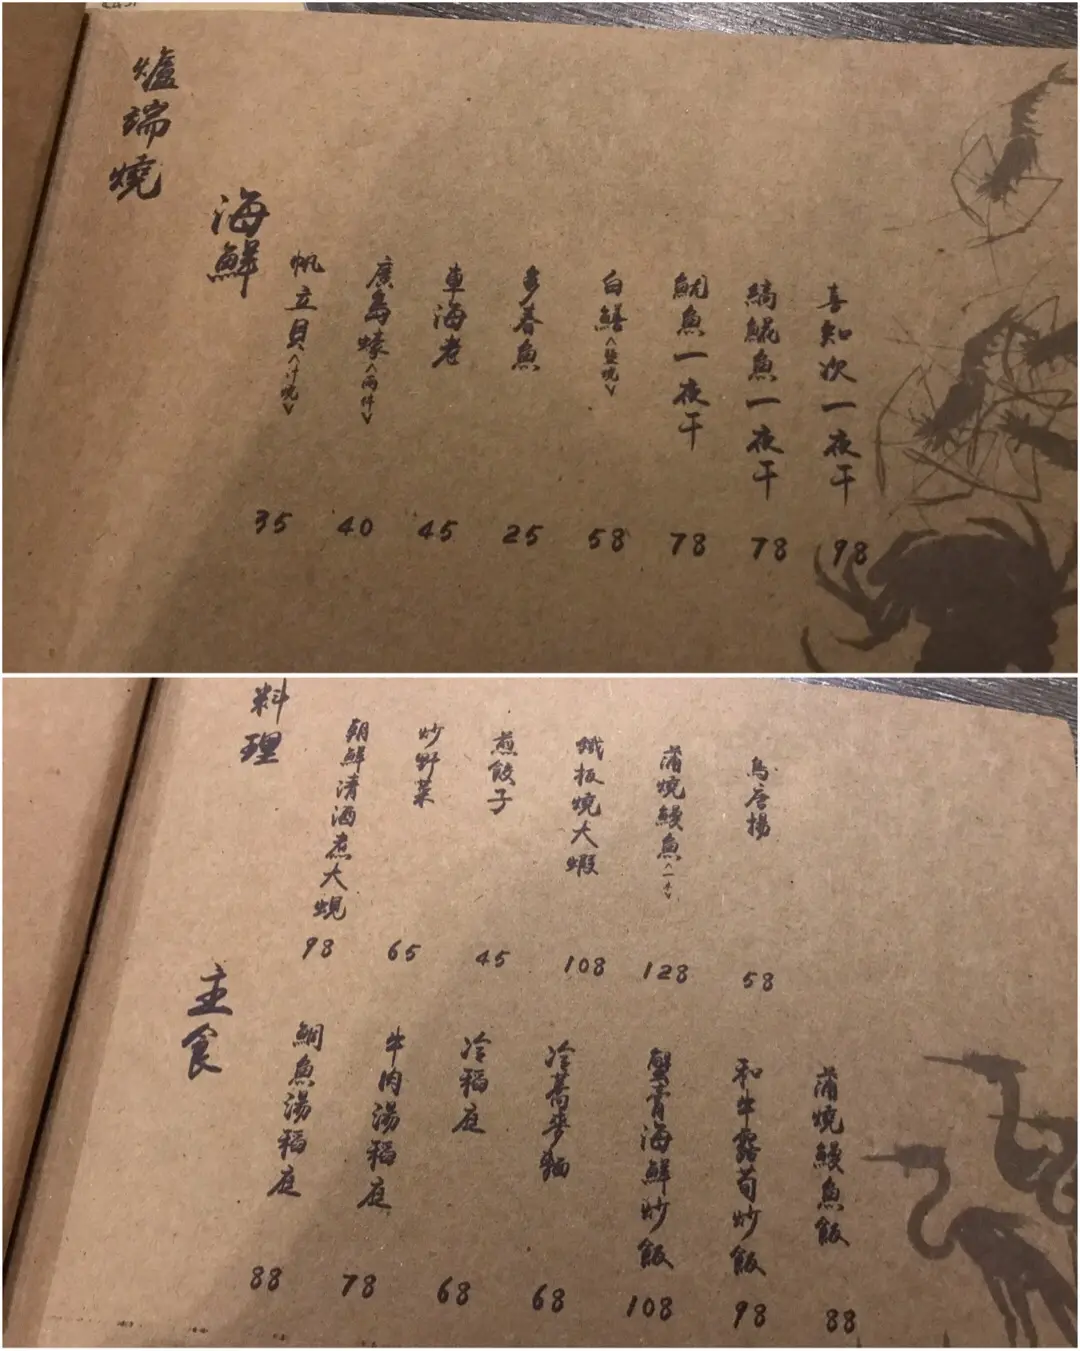 爐端燒
海鮮
帆立貝<汁燒>
35
廣島蠔<兩件>
40
車海老
45
多春魚
25
白鱔<塩燒>
58
魷魚一夜干
78
縞鯤魚一夜干
78
喜知次一夜干
98
料理
朝鮮清酒煮大蜆
98
炒野菜
65
煎餃子
45
鐵板燒大蝦
108
蒲燒鰻魚<一本>
128
鳥唐揚
58
主食
鯛魚湯稻庭
88
牛肉湯稻庭
78
冷稻庭
68
冷蕎麥麵
68
蟹膏海鮮炒飯
108
和牛露荀炒飯
98
蒲燒鰻魚飯
88